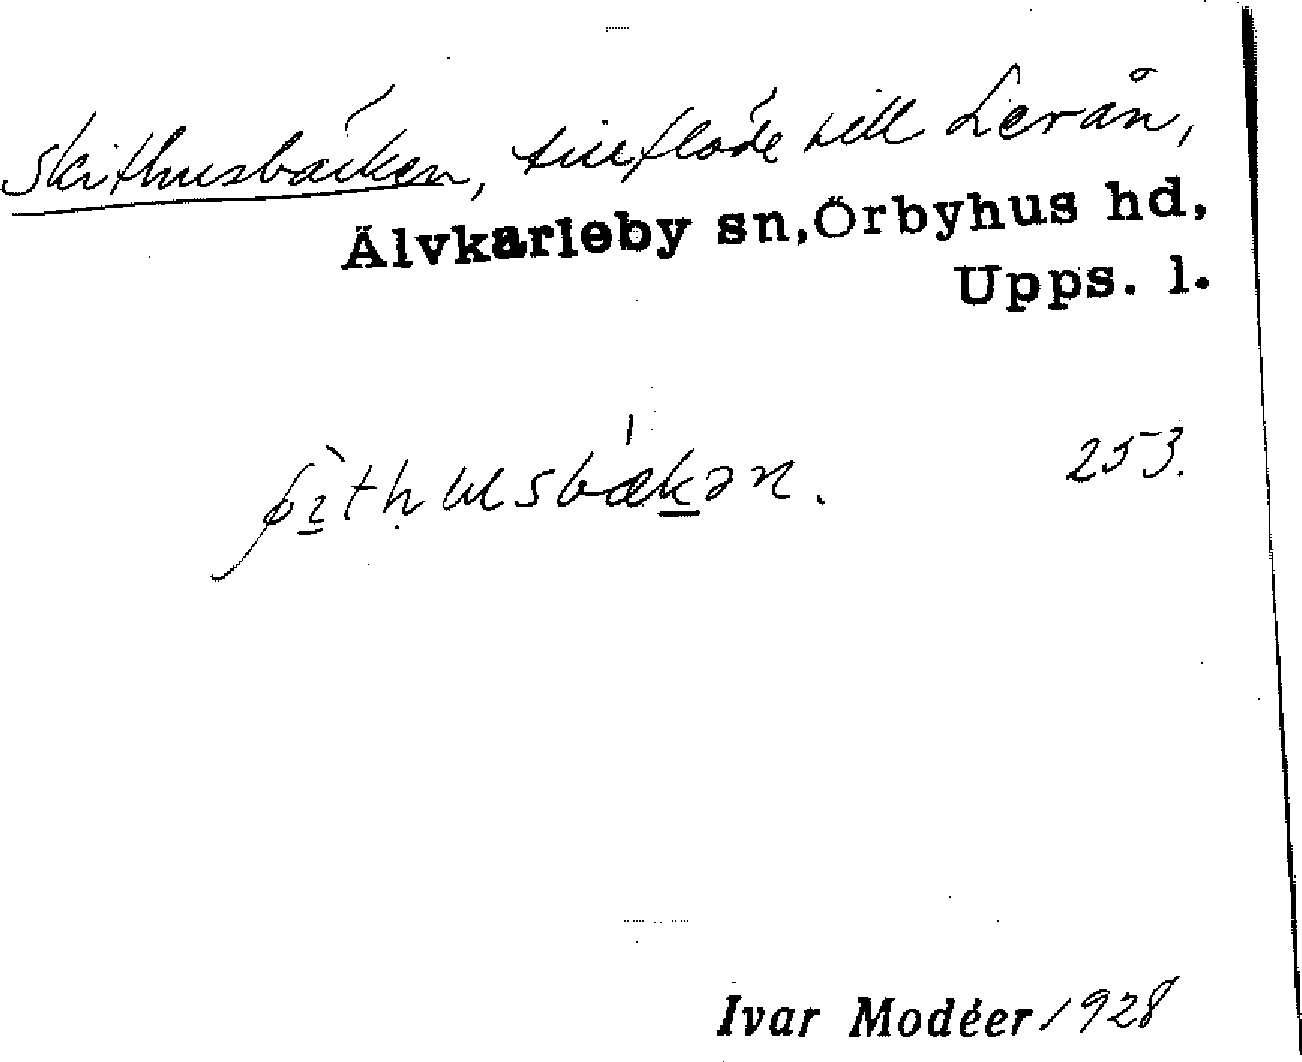 Skithusbäcken, tillflöde till Lerån,
Älvkarleby sn, Örbyhus hd,
Upps. l.
253.
Ivar Modéer 1928